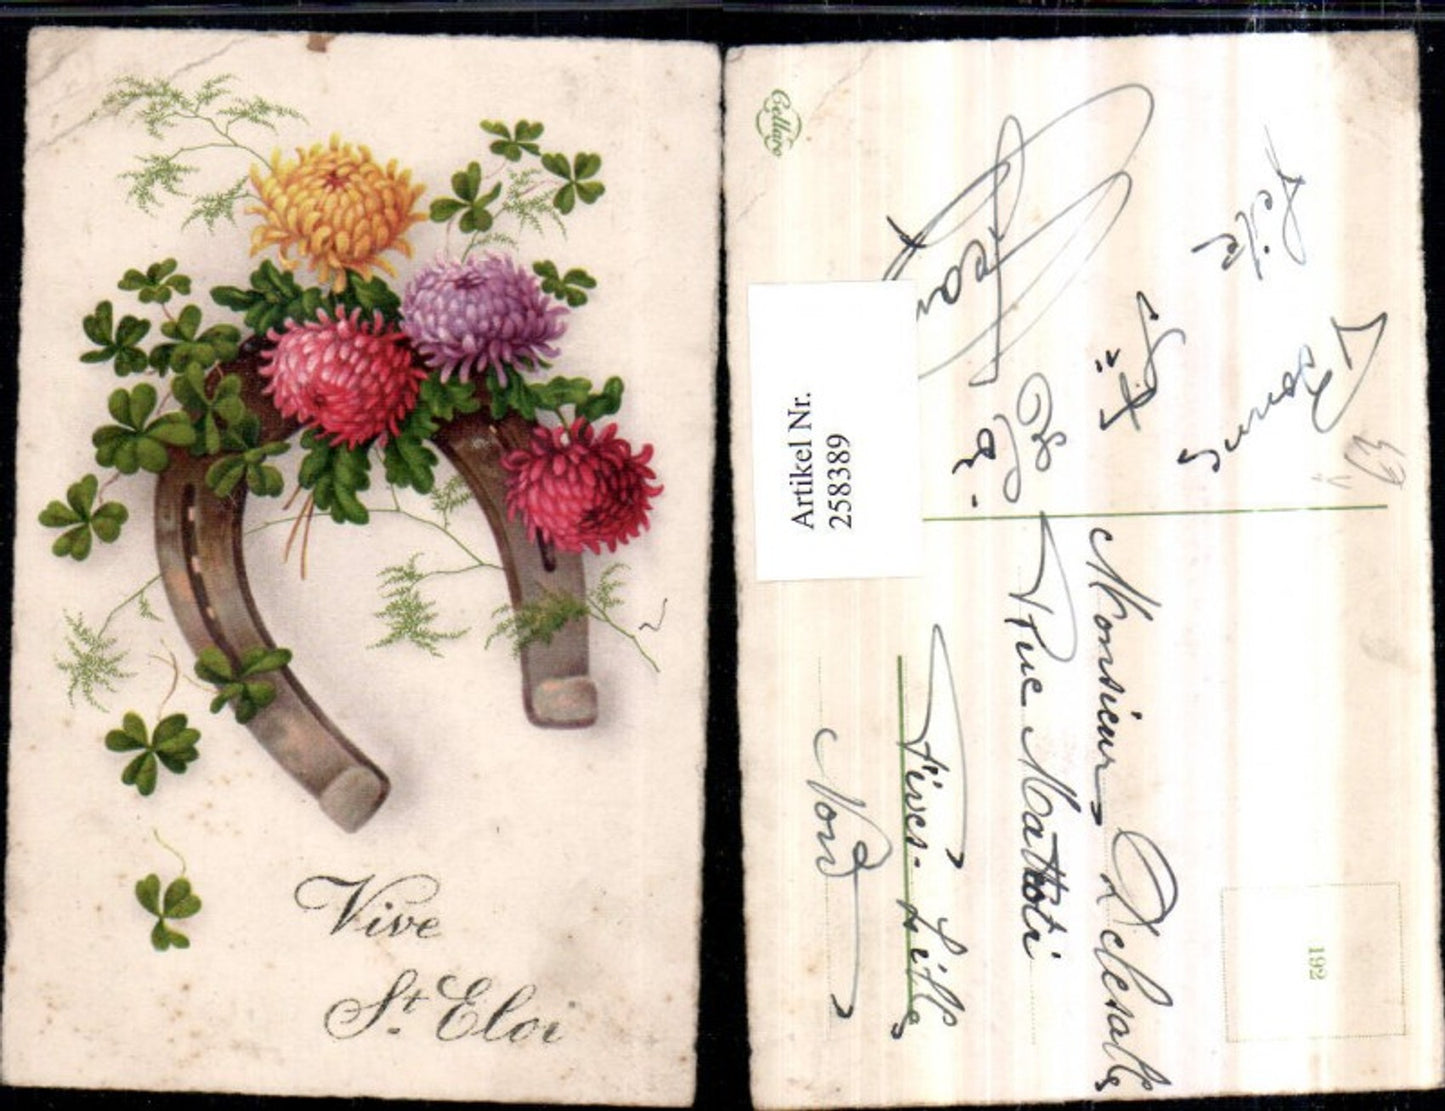 Vive
St Eloi
Cellaro
Artikel Nr.
258389
Bonne
fête
St
Eloi
Jean
Monsieur Delesalle
Rue Mattéoti
Fives-Lille
Nord
192